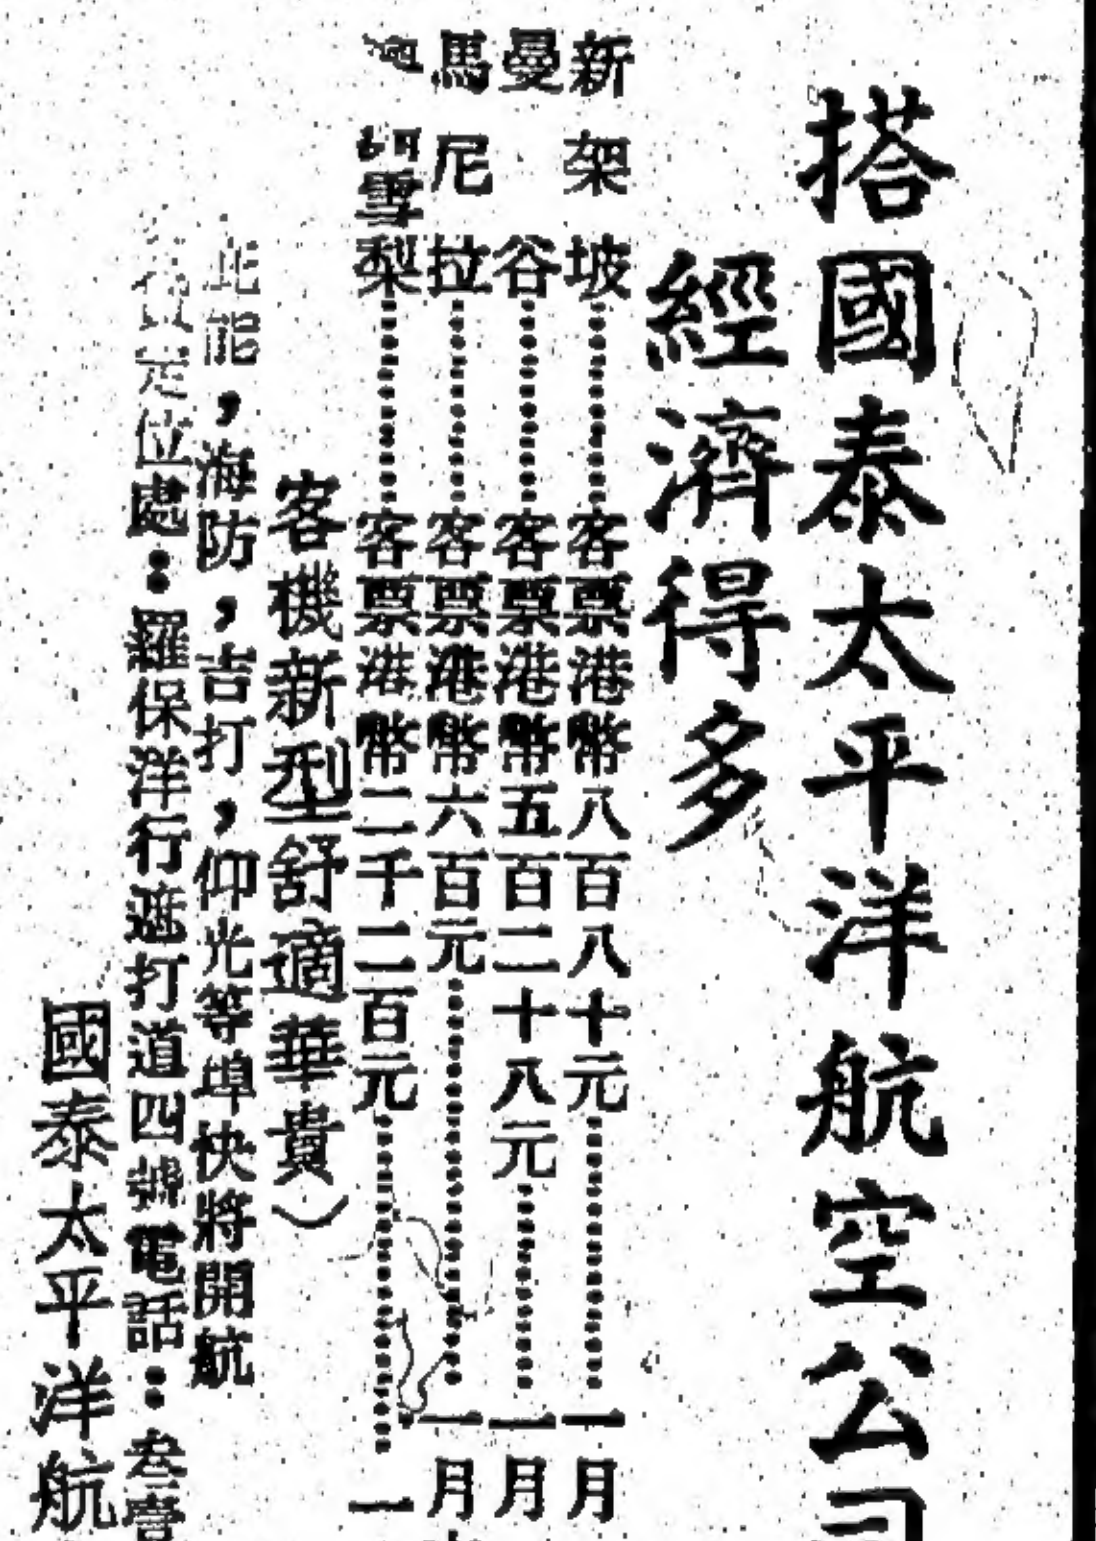 搭國泰太平洋航空公司
經濟得多
新架坡……客票港幣八百八十元……一月
曼谷……客票港幣五百二十八元……一月
馬尼拉……客票港幣六百元……一月
雪梨……客票港幣二千二百元……一
客機新型舒適華貴）
能，海防，吉打，仰光等埠快將開航
定位處：羅保洋行遮打道四號電話：叁壹
國泰太平洋航